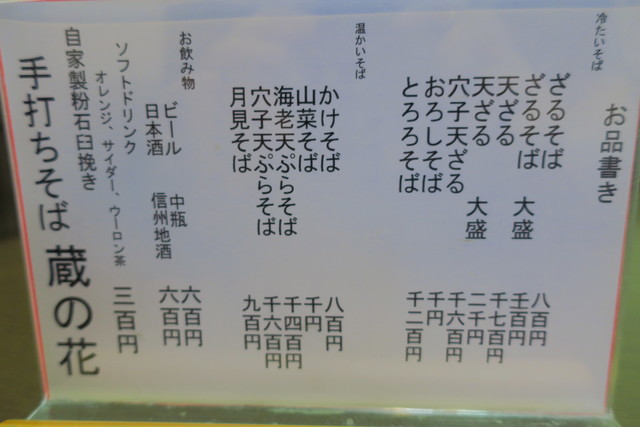 お品書き
冷たいそば
ざるそば 八百円
ざるそば 大盛 千百円
天ざる 千七百円
天ざる 大盛 二千円
穴子天ざる 千六百円
おろしそば 千円
とろろそば 千二百円
温かいそば
かけそば 八百円
山菜そば 千円
海老天ぷらそば 千四百円
穴子天ぷらそば 千六百円
月見そば 九百円
お飲み物
ビール 中瓶 六百円
日本酒 信州地酒 六百円
ソフトドリンク 三百円
オレンジ、サイダー、ウーロン茶
自家製粉石臼挽き
手打ちそば 蔵の花